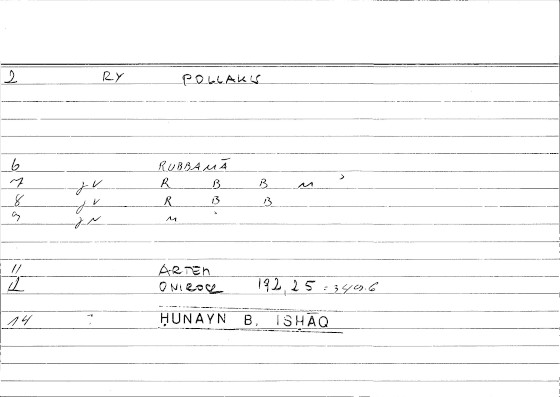 2 RY POLLAKIS
6 RUBBAMĀ
7 gV R B B M ʾ
8 gV R B B
9 gN M ʾ
11 ARTEM
12 ONIROCR 192,25 = 349.6
14 : ḤUNAYN B. ISḤĀQ